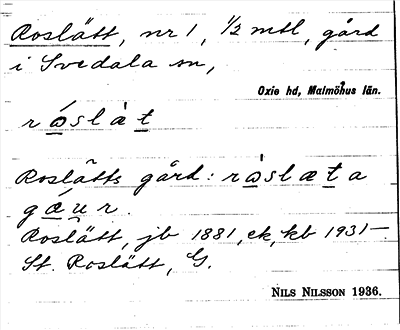 Roslätt, nr 1, 1/2 mtl, gård
i Svedala sn,
Oxie hd, Malmöhus län.
Roslätts gård:
Roslätt, jb 1881, ek, kb 1931—
St. Roslätt, G.
NILS NILSSON 1936.